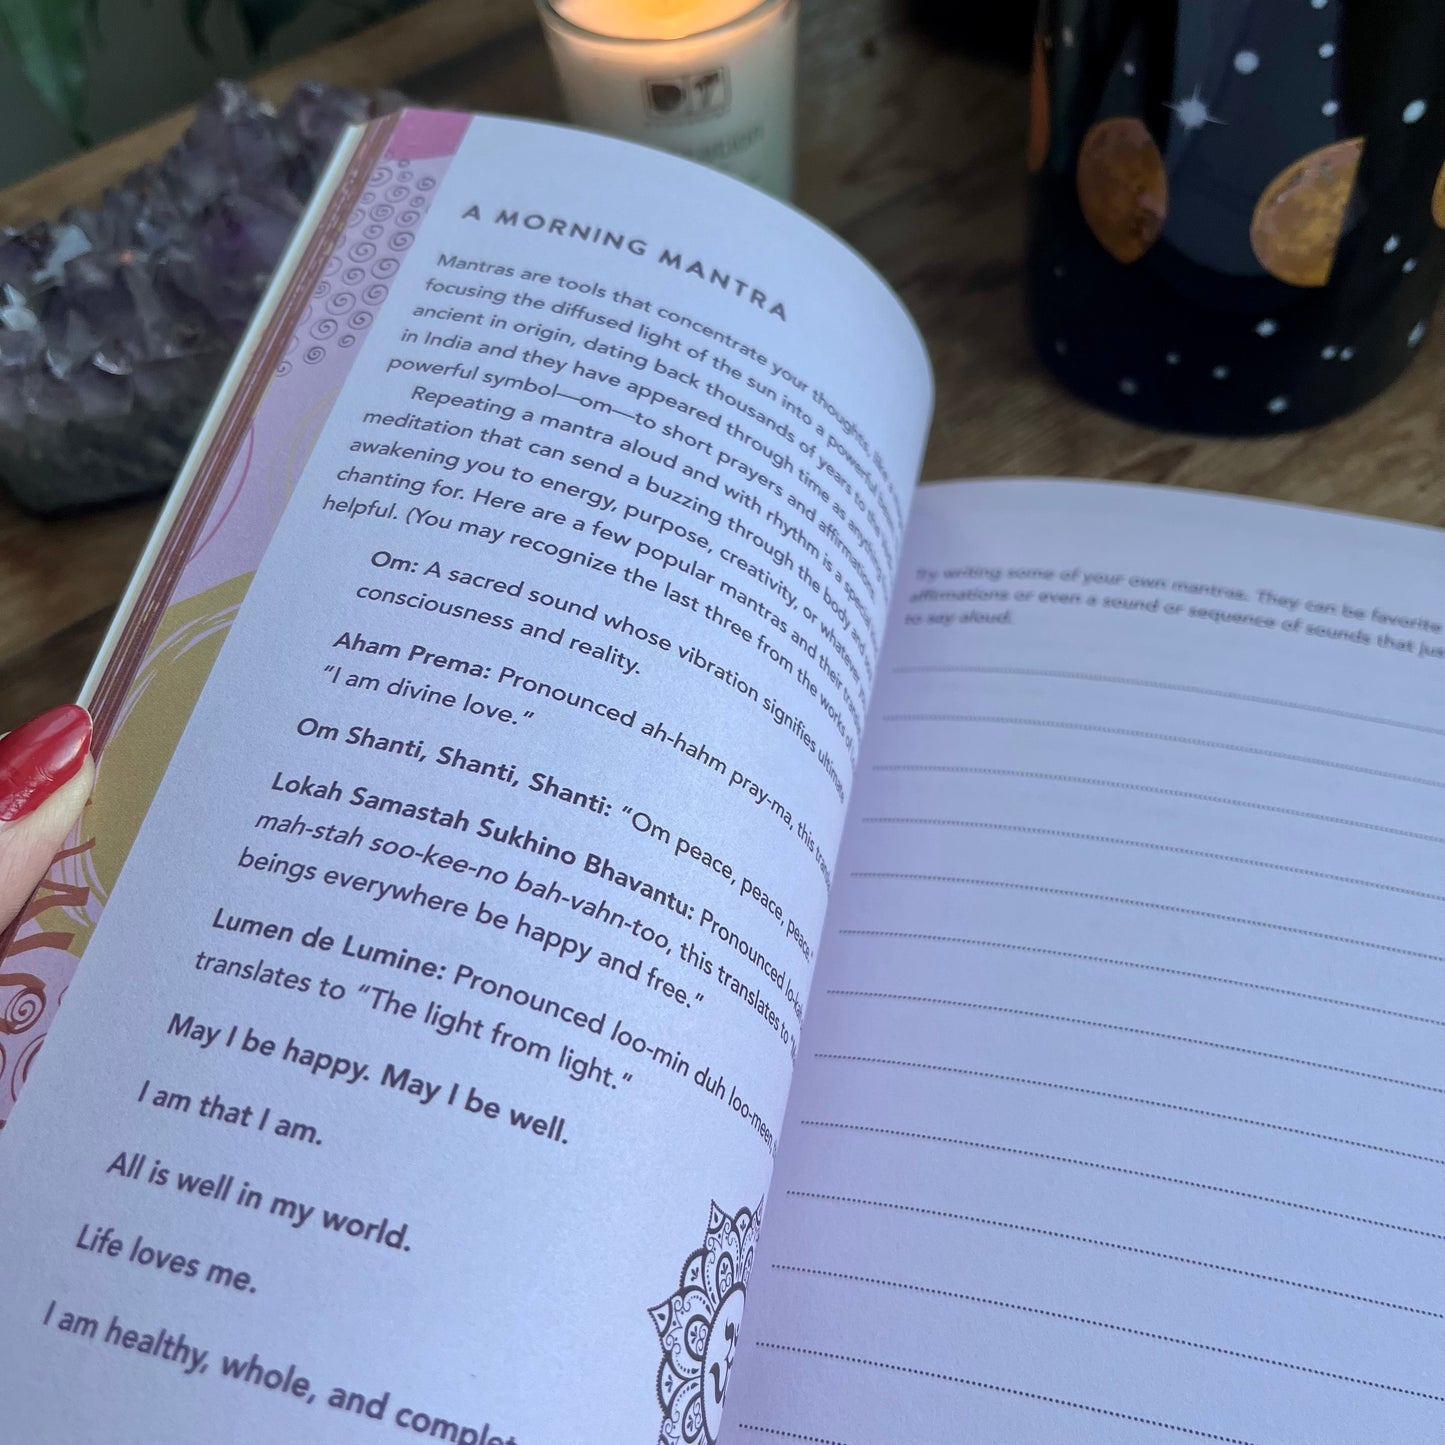 A MORNING MANTRA
Mantras are tools that concentrate your thoughts, like a
focusing the diffused light of the sun into a powerful beam
ancient in origin, dating back thousands of years to the
in India and they have appeared through time as anything
powerful symbol—om—to short prayers and affirmations.
Repeating a mantra aloud and with rhythm is a special
meditation that can send a buzzing through the body and
awakening you to energy, purpose, creativity, or whatever
chanting for. Here are a few popular mantras and their
helpful. (You may recognize the last three from the works of
Om: A sacred sound whose vibration signifies ultimate
consciousness and reality.
Aham Prema: Pronounced ah-hahm pray-ma, this
"I am divine love."
Om Shanti, Shanti, Shanti: "Om peace, peace, peace."
Lokah Samastah Sukhino Bhavantu: Pronounced
mah-stah soo-kee-no bah-vahn-too, this translates to
beings everywhere be happy and free."
Lumen de Lumine: Pronounced loo-min duh loo-meen,
translates to "The light from light."
May I be happy. May I be well.
I am that I am.
All is well in my world.
Life loves me.
I am healthy, whole, and complet
Try writing some of your own mantras. They can be favorite
affirmations or even a sound or sequence of sounds that just
to say aloud.